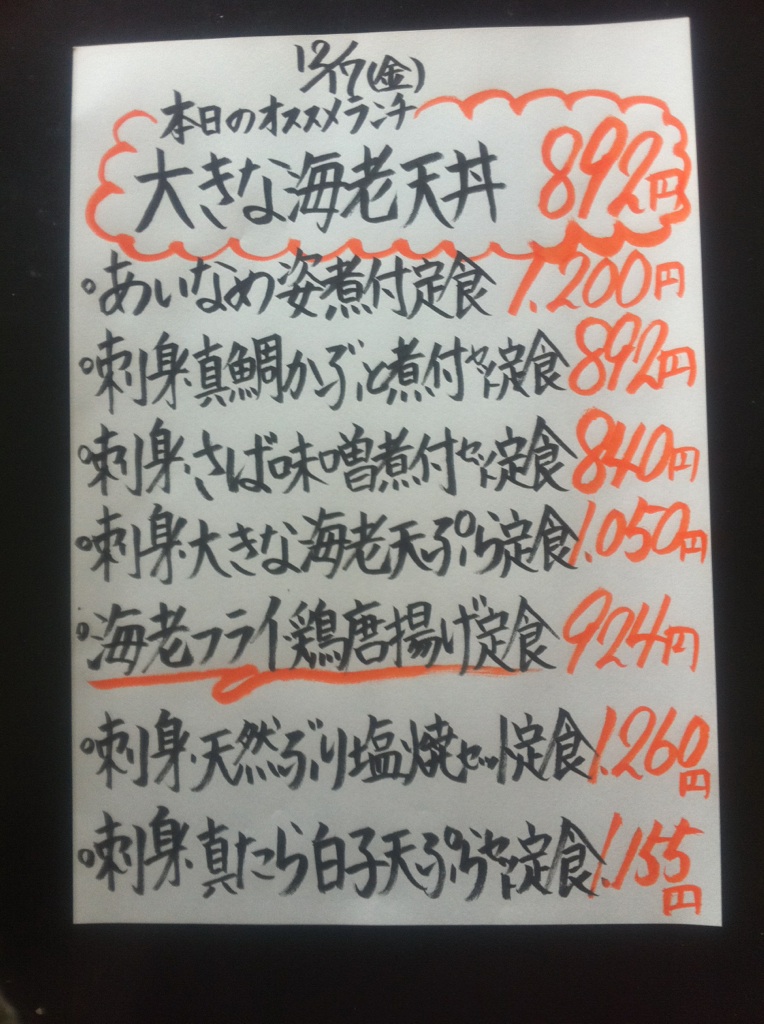 12/17(金)
本日のオススメランチ
大きな海老天丼 892円
。あいなめ姿煮付定食 1.200円
。刺身.真鯛かぶと煮付セット定食 892円
。刺身.さば味噌煮付セット定食 840円
。刺身.大きな海老天ぷら定食 1.050円
。海老フライ鶏唐揚げ定食 924円
。刺身.天然ぶり塩焼セット定食 1.260円
。刺身.真たら白子天ぷらセット定食 1.155円